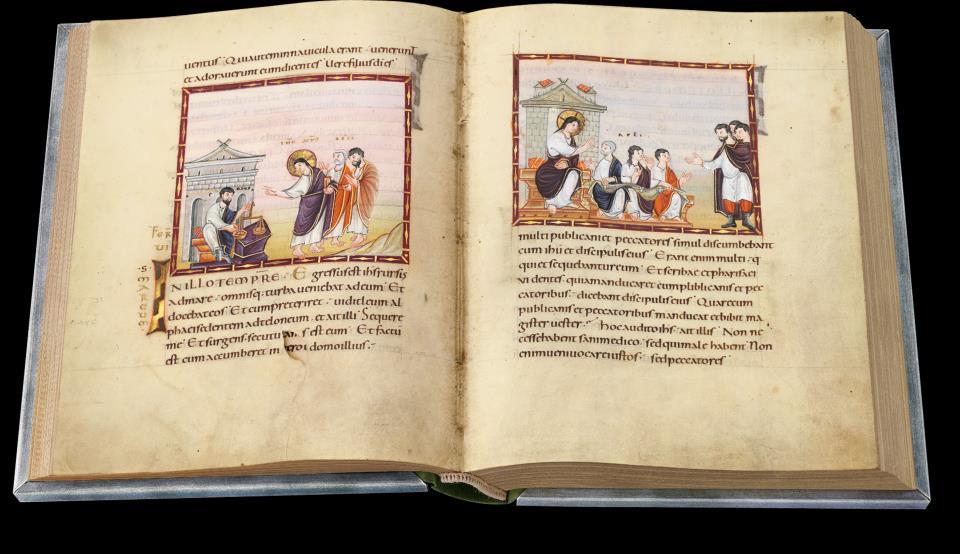 uentus · Qui autem in nauicula erant · uenerunt
et adorauerunt eum dicentes Uere filius dī es
N ILLO TEMPRE · Egressus est ihs rursus
ad mare · omnisq; turba ueniebat ad eum · Et
docebat eos · Et cum preteriret · uidit leuin al
phaei sedentem ad teloneum · et ait illi · Sequere
me · Et surgens secutus est eum · Et factū
est cum accumberet in domo illius ·
multi publicani et peccatores simul discumbebant
cum ihu et discipulis eius · Erant enim multi · q
qui et sequebantur eum · Et scribae et pharisaei
uidentes quia manducaret cum publicanis et pec
catoribus · dicebant discipulis eius · Quare cum
publicanis et peccatoribus manducat et bibit ma
gister uester · Hoc audito ihs · ait illis · Non ne
cesse habent sani medico · sed qui male habent Non
enim ueni uocare iustos · sed peccatores